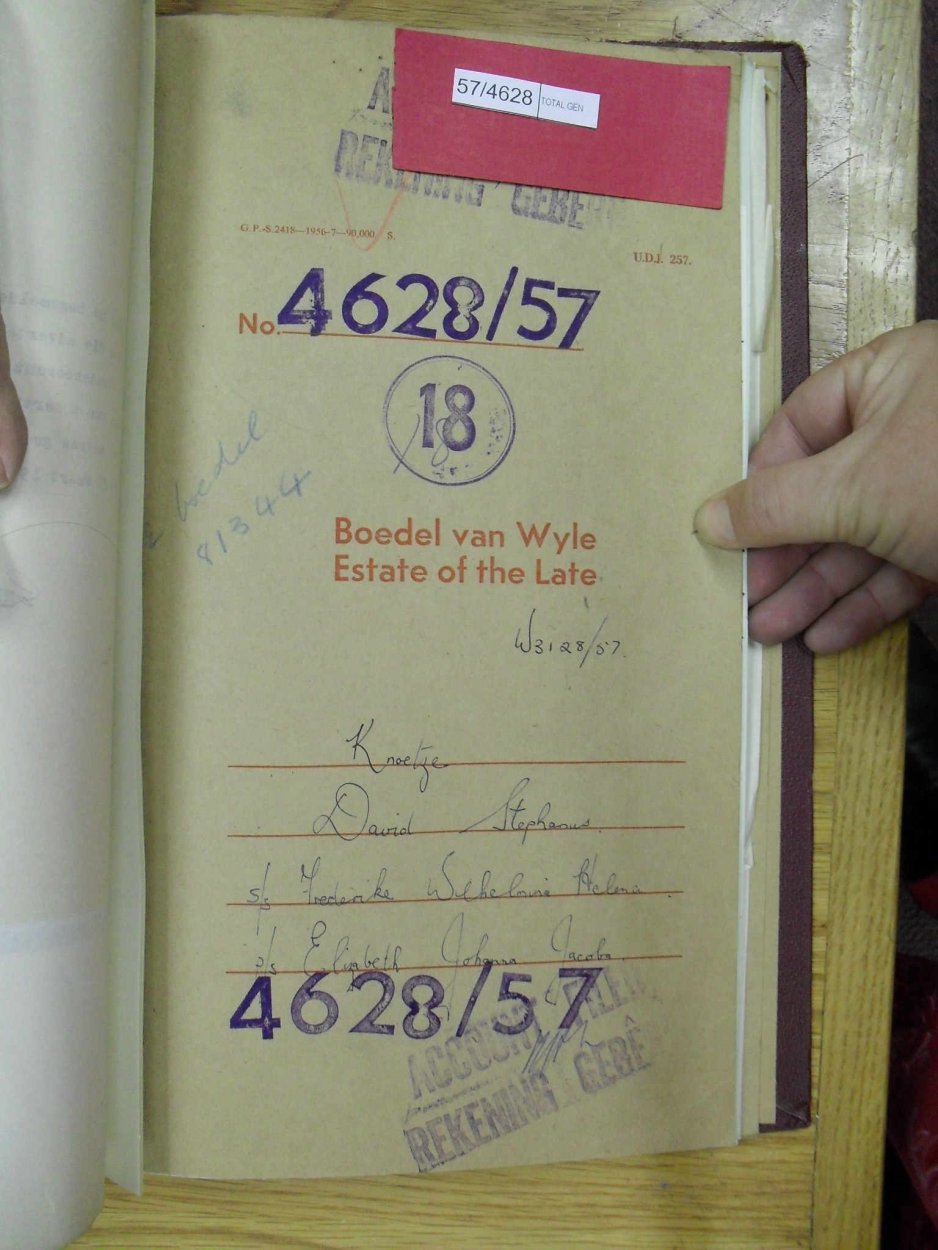 57/4628 TOTAL GEN
REKENING GEBÊ
G.P.-S.2418—1956-7—90,000 S.
U.D.J. 257.
No. 4628/57
18
boedel
81344
Boedel van Wyle
Estate of the Late
W3128/57.
Knoetze
David Stephanus.
s/s Frederike Wilhelmine Helena.
p/s Elizabeth Johanna Jacoba.
4628/57
ACCOUNT
REKENING GEBÊ